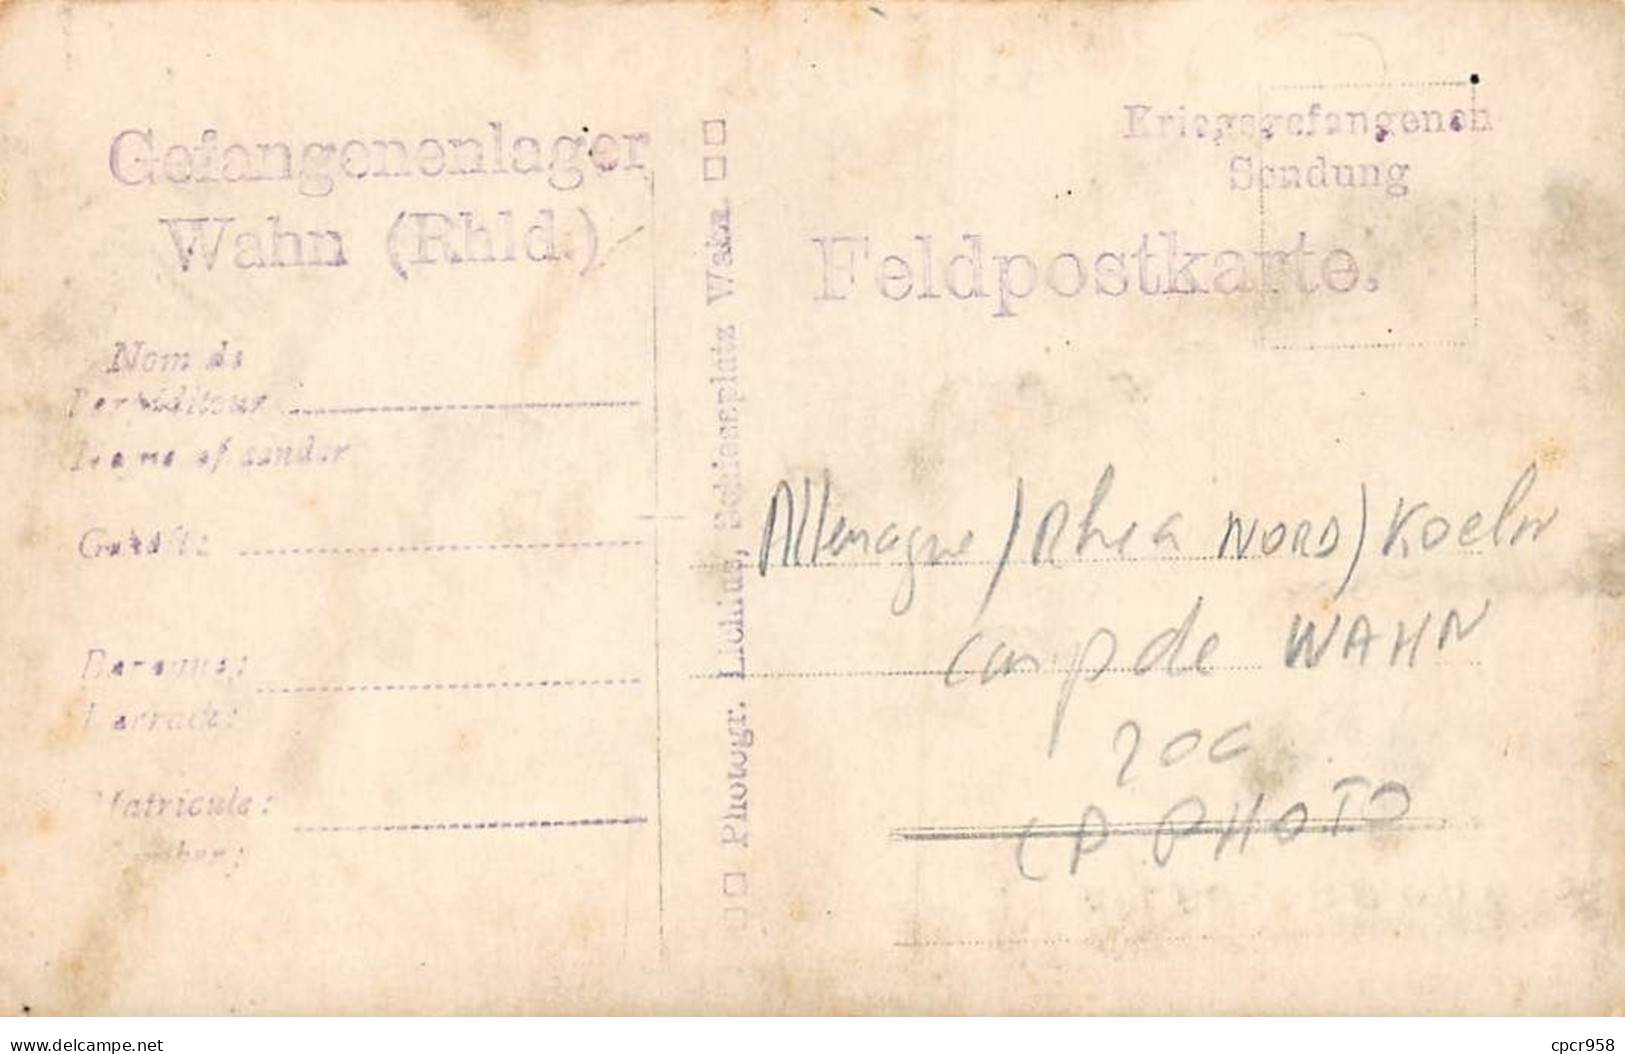 Gefangenenlager
Wahn (Rhld.)
Nom de
l'expéditeur
Name of sender
Baraque:
Barrack:
Matricule:
Number:
Photogr. Lichius, Schiessplatz Wahn.
Kriegsgefangenen
Sendung
Feldpostkarte.
Allemagne / NORD) Koeln
camp de WAHN
CP PHOTO
www.delcampe.net
cpcr958